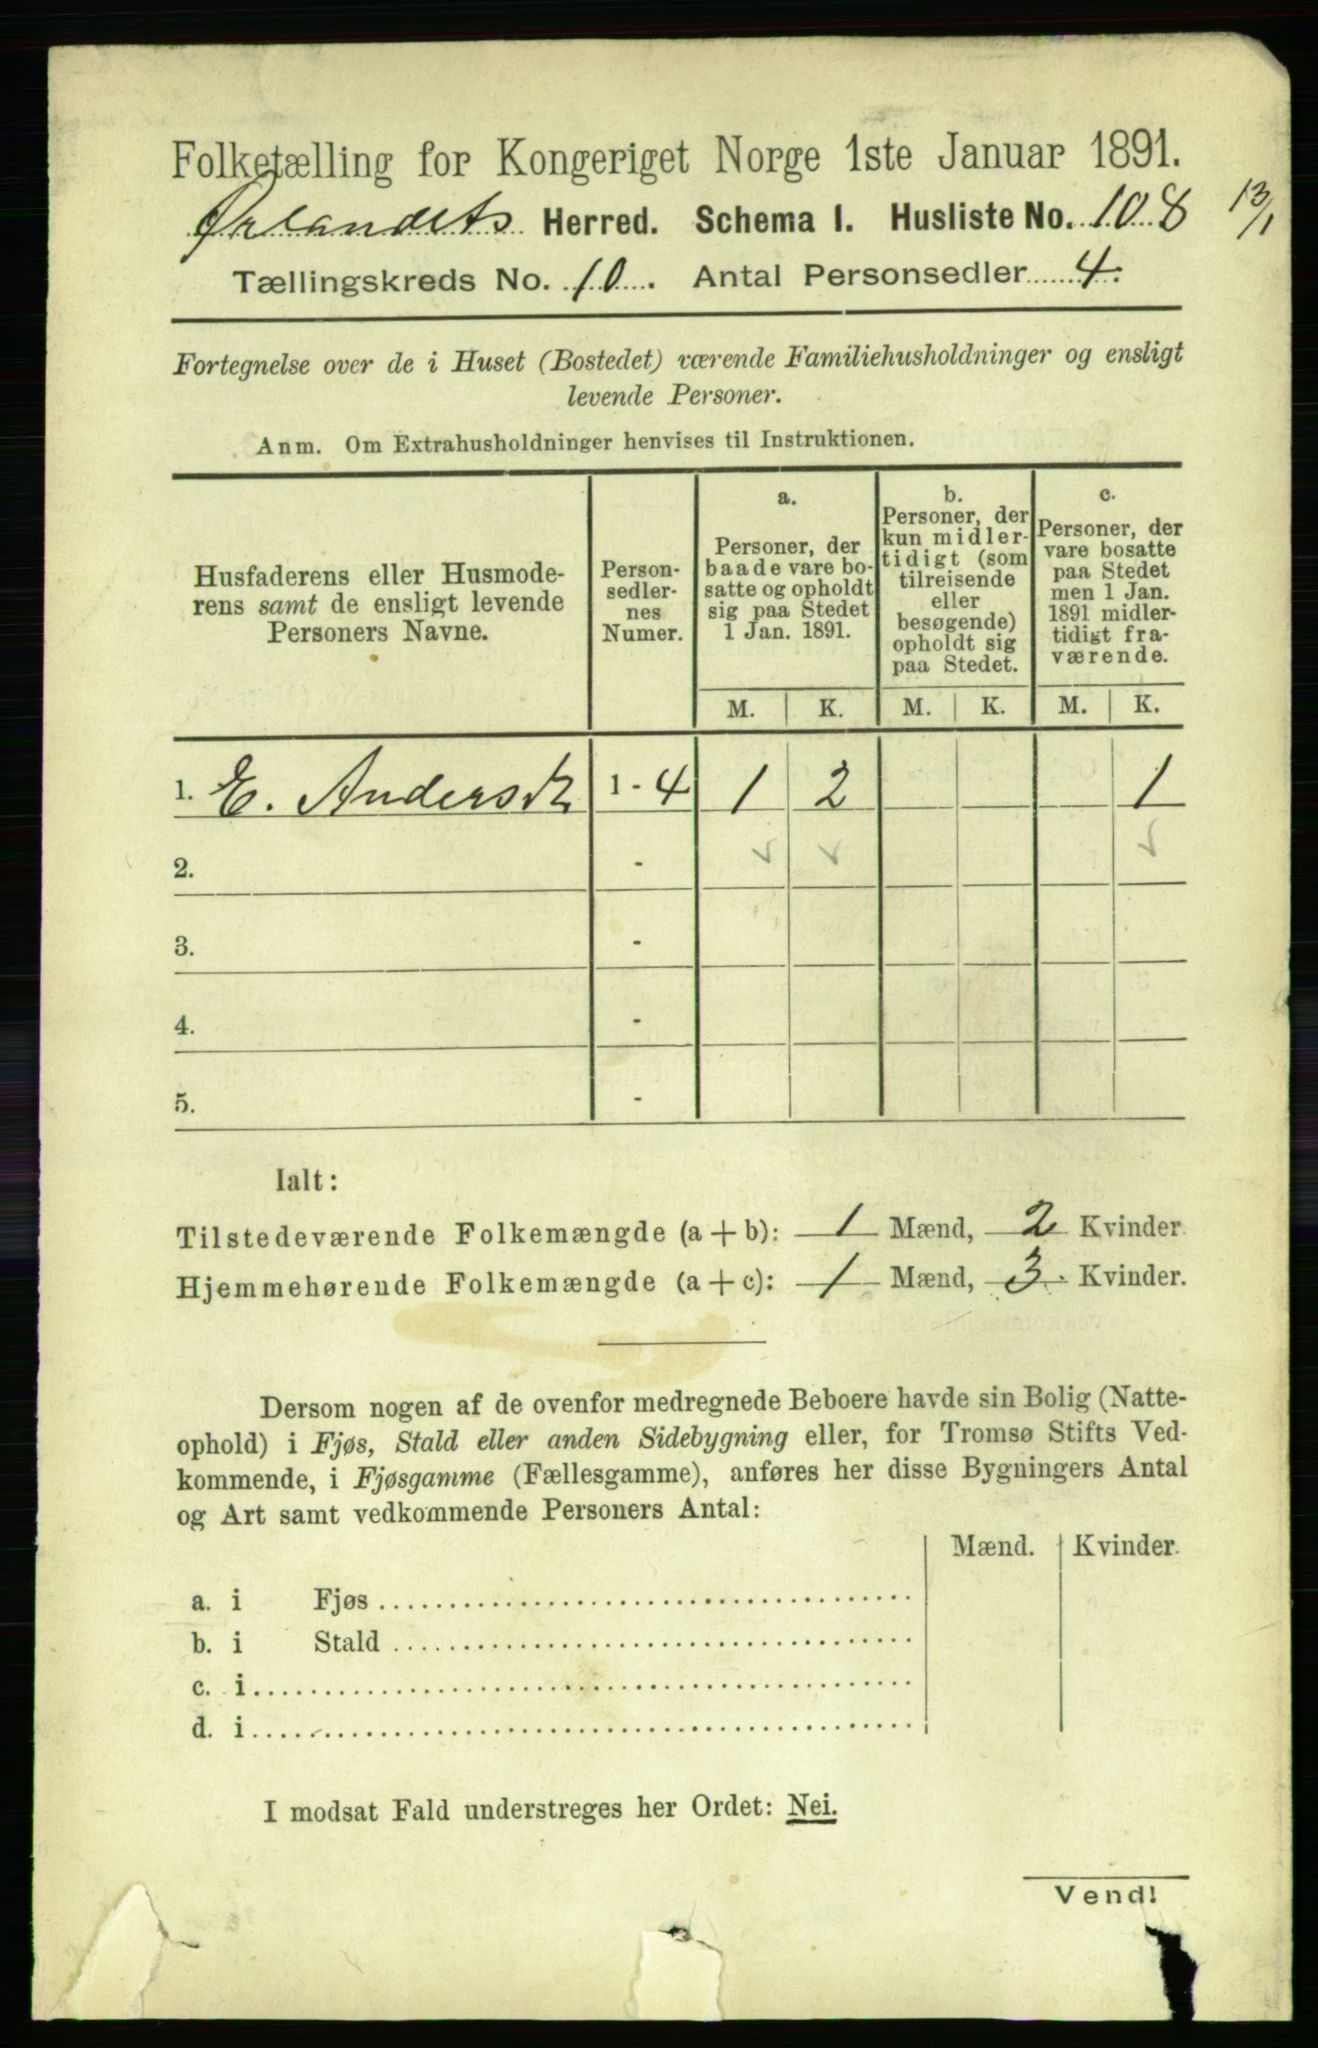 Folketælling for Kongeriget Norge 1ste Januar 1891.
Ørlandets Herred. Schema I. Husliste No. 108 13/1
Tællingskreds No. 10. Antal Personsedler 4.
Fortegnelse over de i Huset (Bostedet) værende Familiehusholdninger og ensligt
levende Personer.
Anm. Om Extrahusholdninger henvises til Instruktionen.
Husfaderens eller Husmode-
rens samt de ensligt levende
Personers Navne.
Person-
sedler-
nes
Numer.
a.
Personer, der
baade vare bo-
satte og opholdt
sig paa Stedet
1 Jan. 1891.
b.
Personer, der
kun midler-
tidigt (som
tilreisende
eller
besøgende)
opholdt sig
paa Stedet.
c.
Personer, der
vare bosatte
paa Stedet
men 1 Jan.
1891 midler-
tidigt fra-
værende.
M. K. M. K. M. K.
1. E. 1 - 4 1 2 1
2. -
3. -
4. -
5. -
Ialt:
Tilstedeværende Folkemængde (a + b): 1 Mænd, 2 Kvinder.
Hjemmehørende Folkemængde (a + c): 1 Mænd, 3. Kvinder.
Dersom nogen af de ovenfor medregnede Beboere havde sin Bolig (Natte-
ophold) i Fjøs, Stald eller anden Sidebygning eller, for Tromsø Stifts Ved-
kommende, i Fjøsgamme (Fællesgamme), anføres her disse Bygningers Antal
og Art samt vedkommende Personers Antal:
Mænd. Kvinder.
a. i Fjøs
b. i Stald
c. i
d. i
I modsat Fald understreges her Ordet: Nei.
Vend!